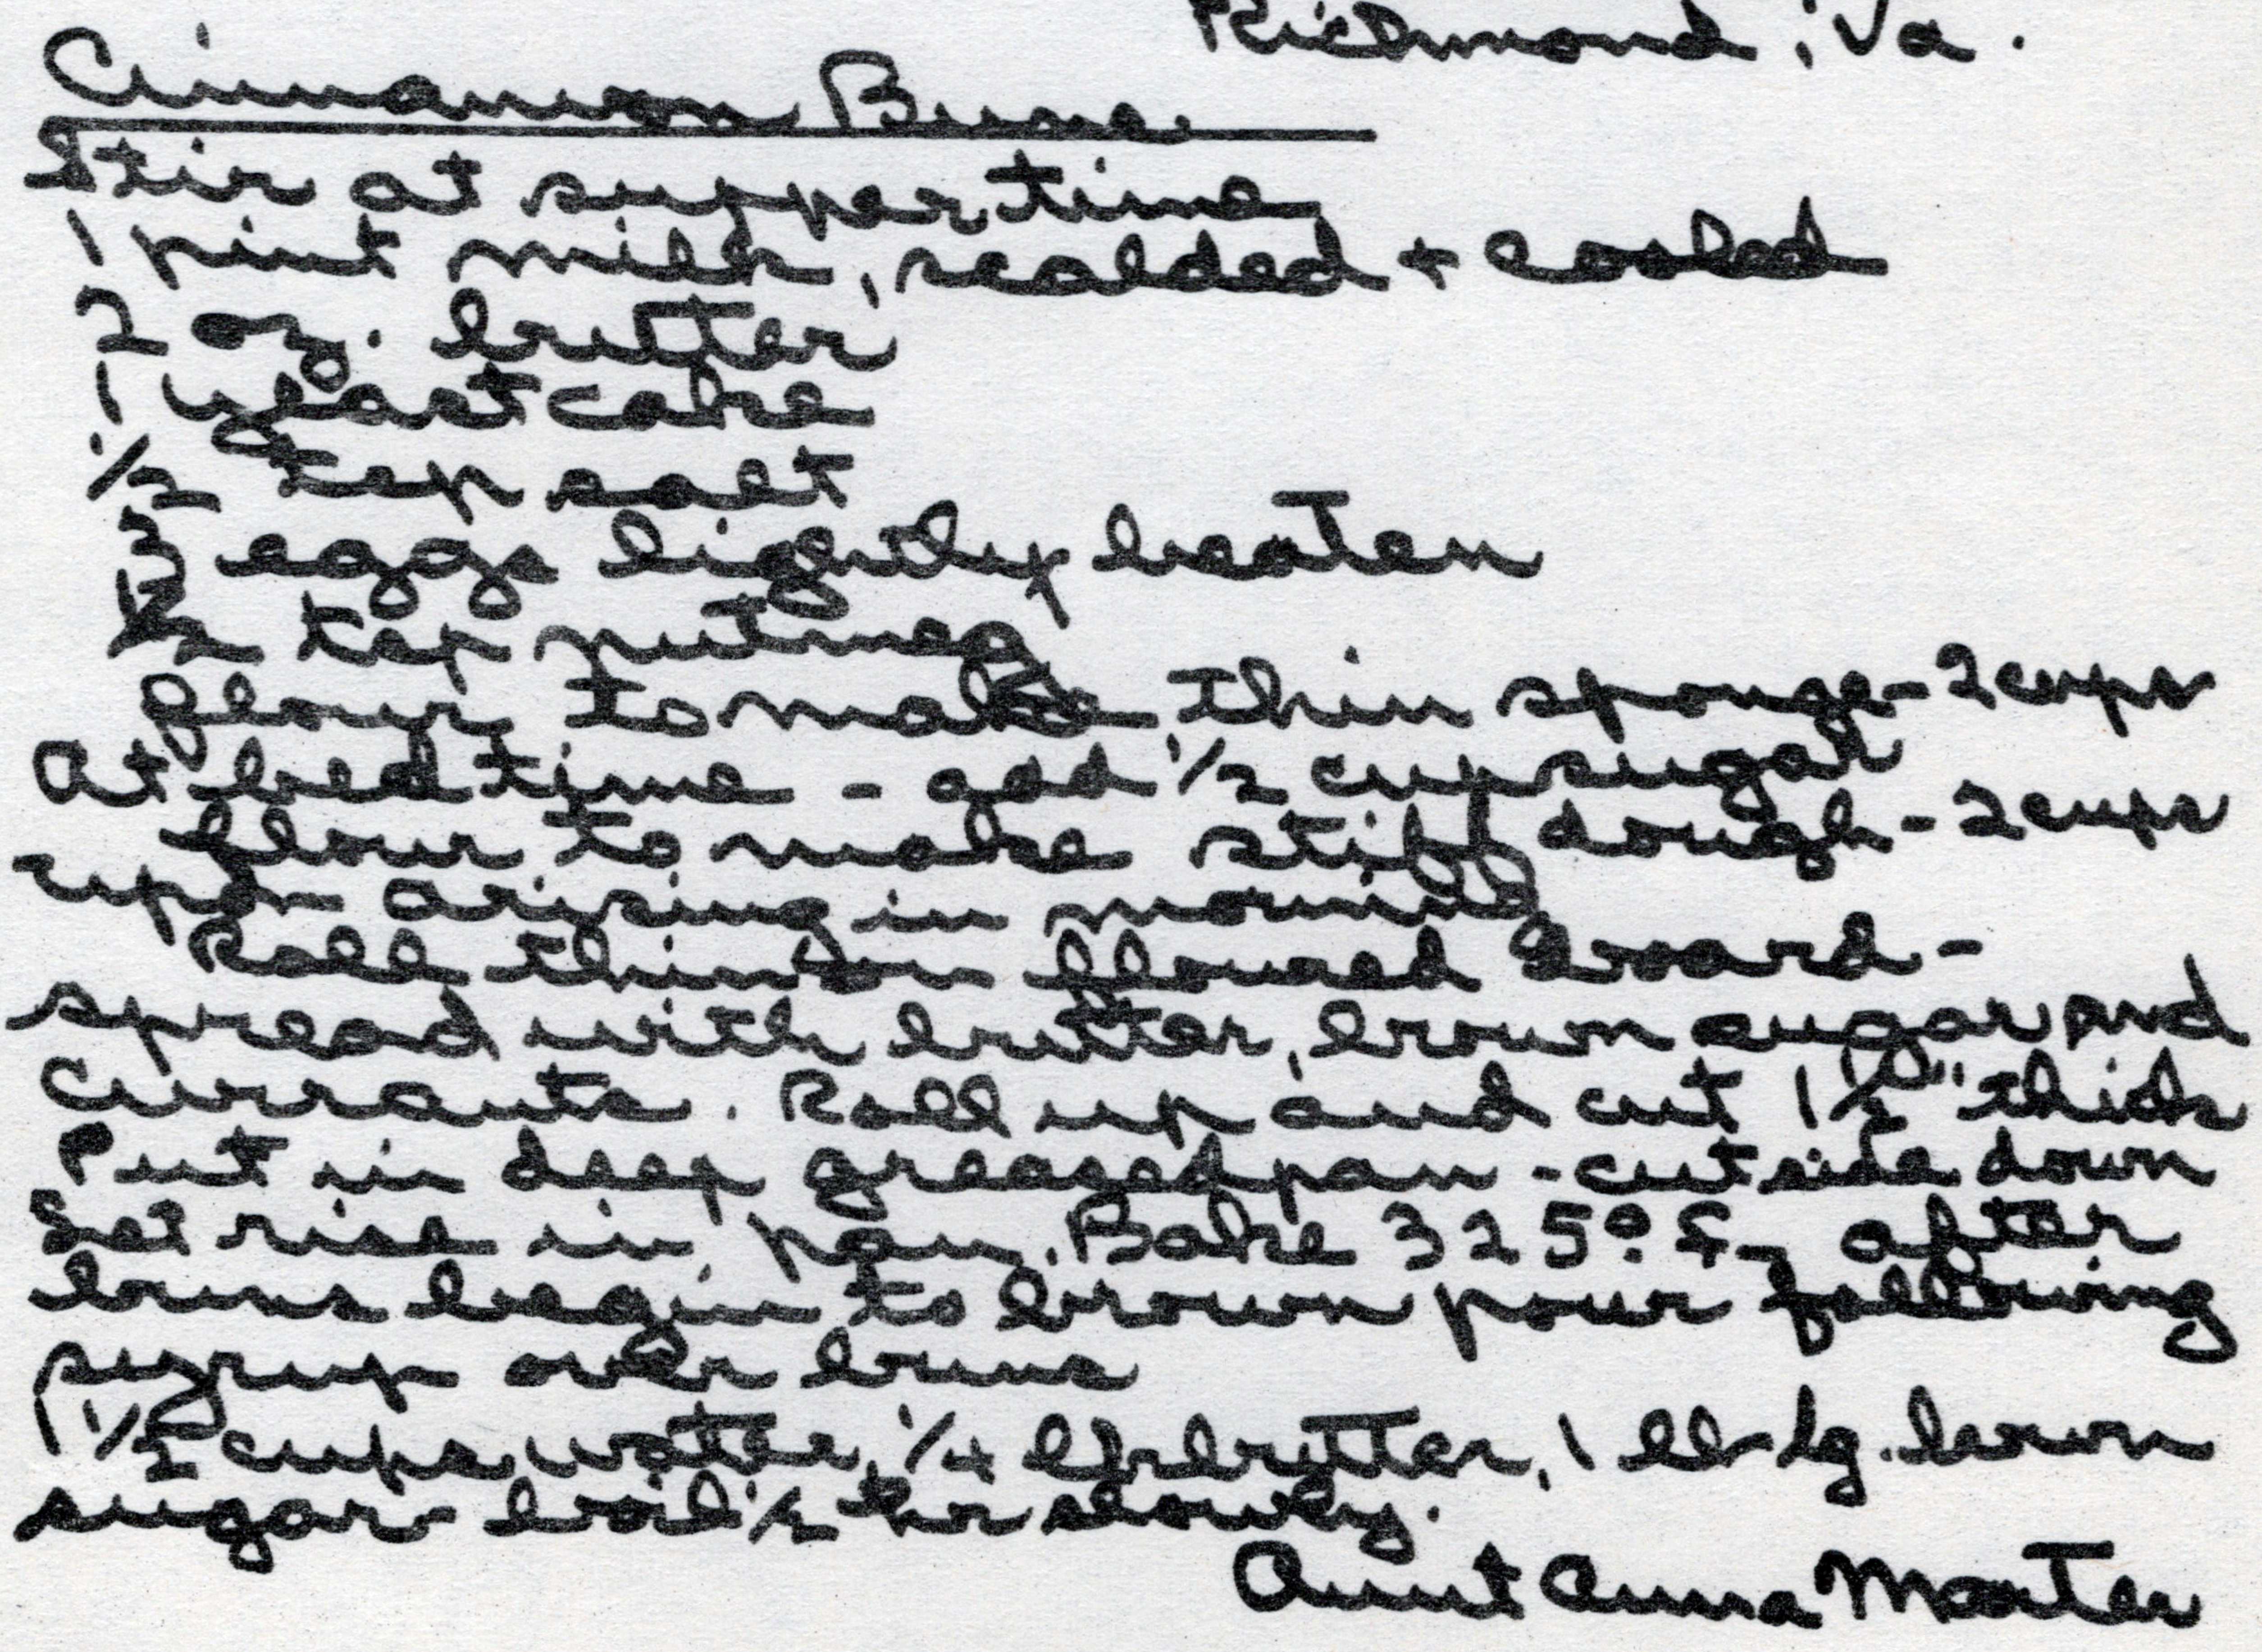 Richmond, Va.
Cinnamon Buns
Stir at supper time
1 pint milk, scalded + cooled
2 oz. butter
1 yeast cake
1/2 tsp salt
3 eggs lightly beaten
1/2 tsp nutmeg
flour to make thin sponge - 2 cups
At bed time - add 1/2 cup sugar
flour to make stiff dough - 2 cups
upon arising in morning
Roll thin on floured board -
spread with butter, brown sugar and
currants. Roll up and cut 1 1/2" thick
Put in deep greased pan - cut side down
Let rise in pan. Bake 325° F - after
buns begin to brown pour following
syrup over buns
1 1/2 cups water, 1/4 lb butter, 1 lb lg. brown
sugar - boil 1/2 hr slowly.
Aunt Anna